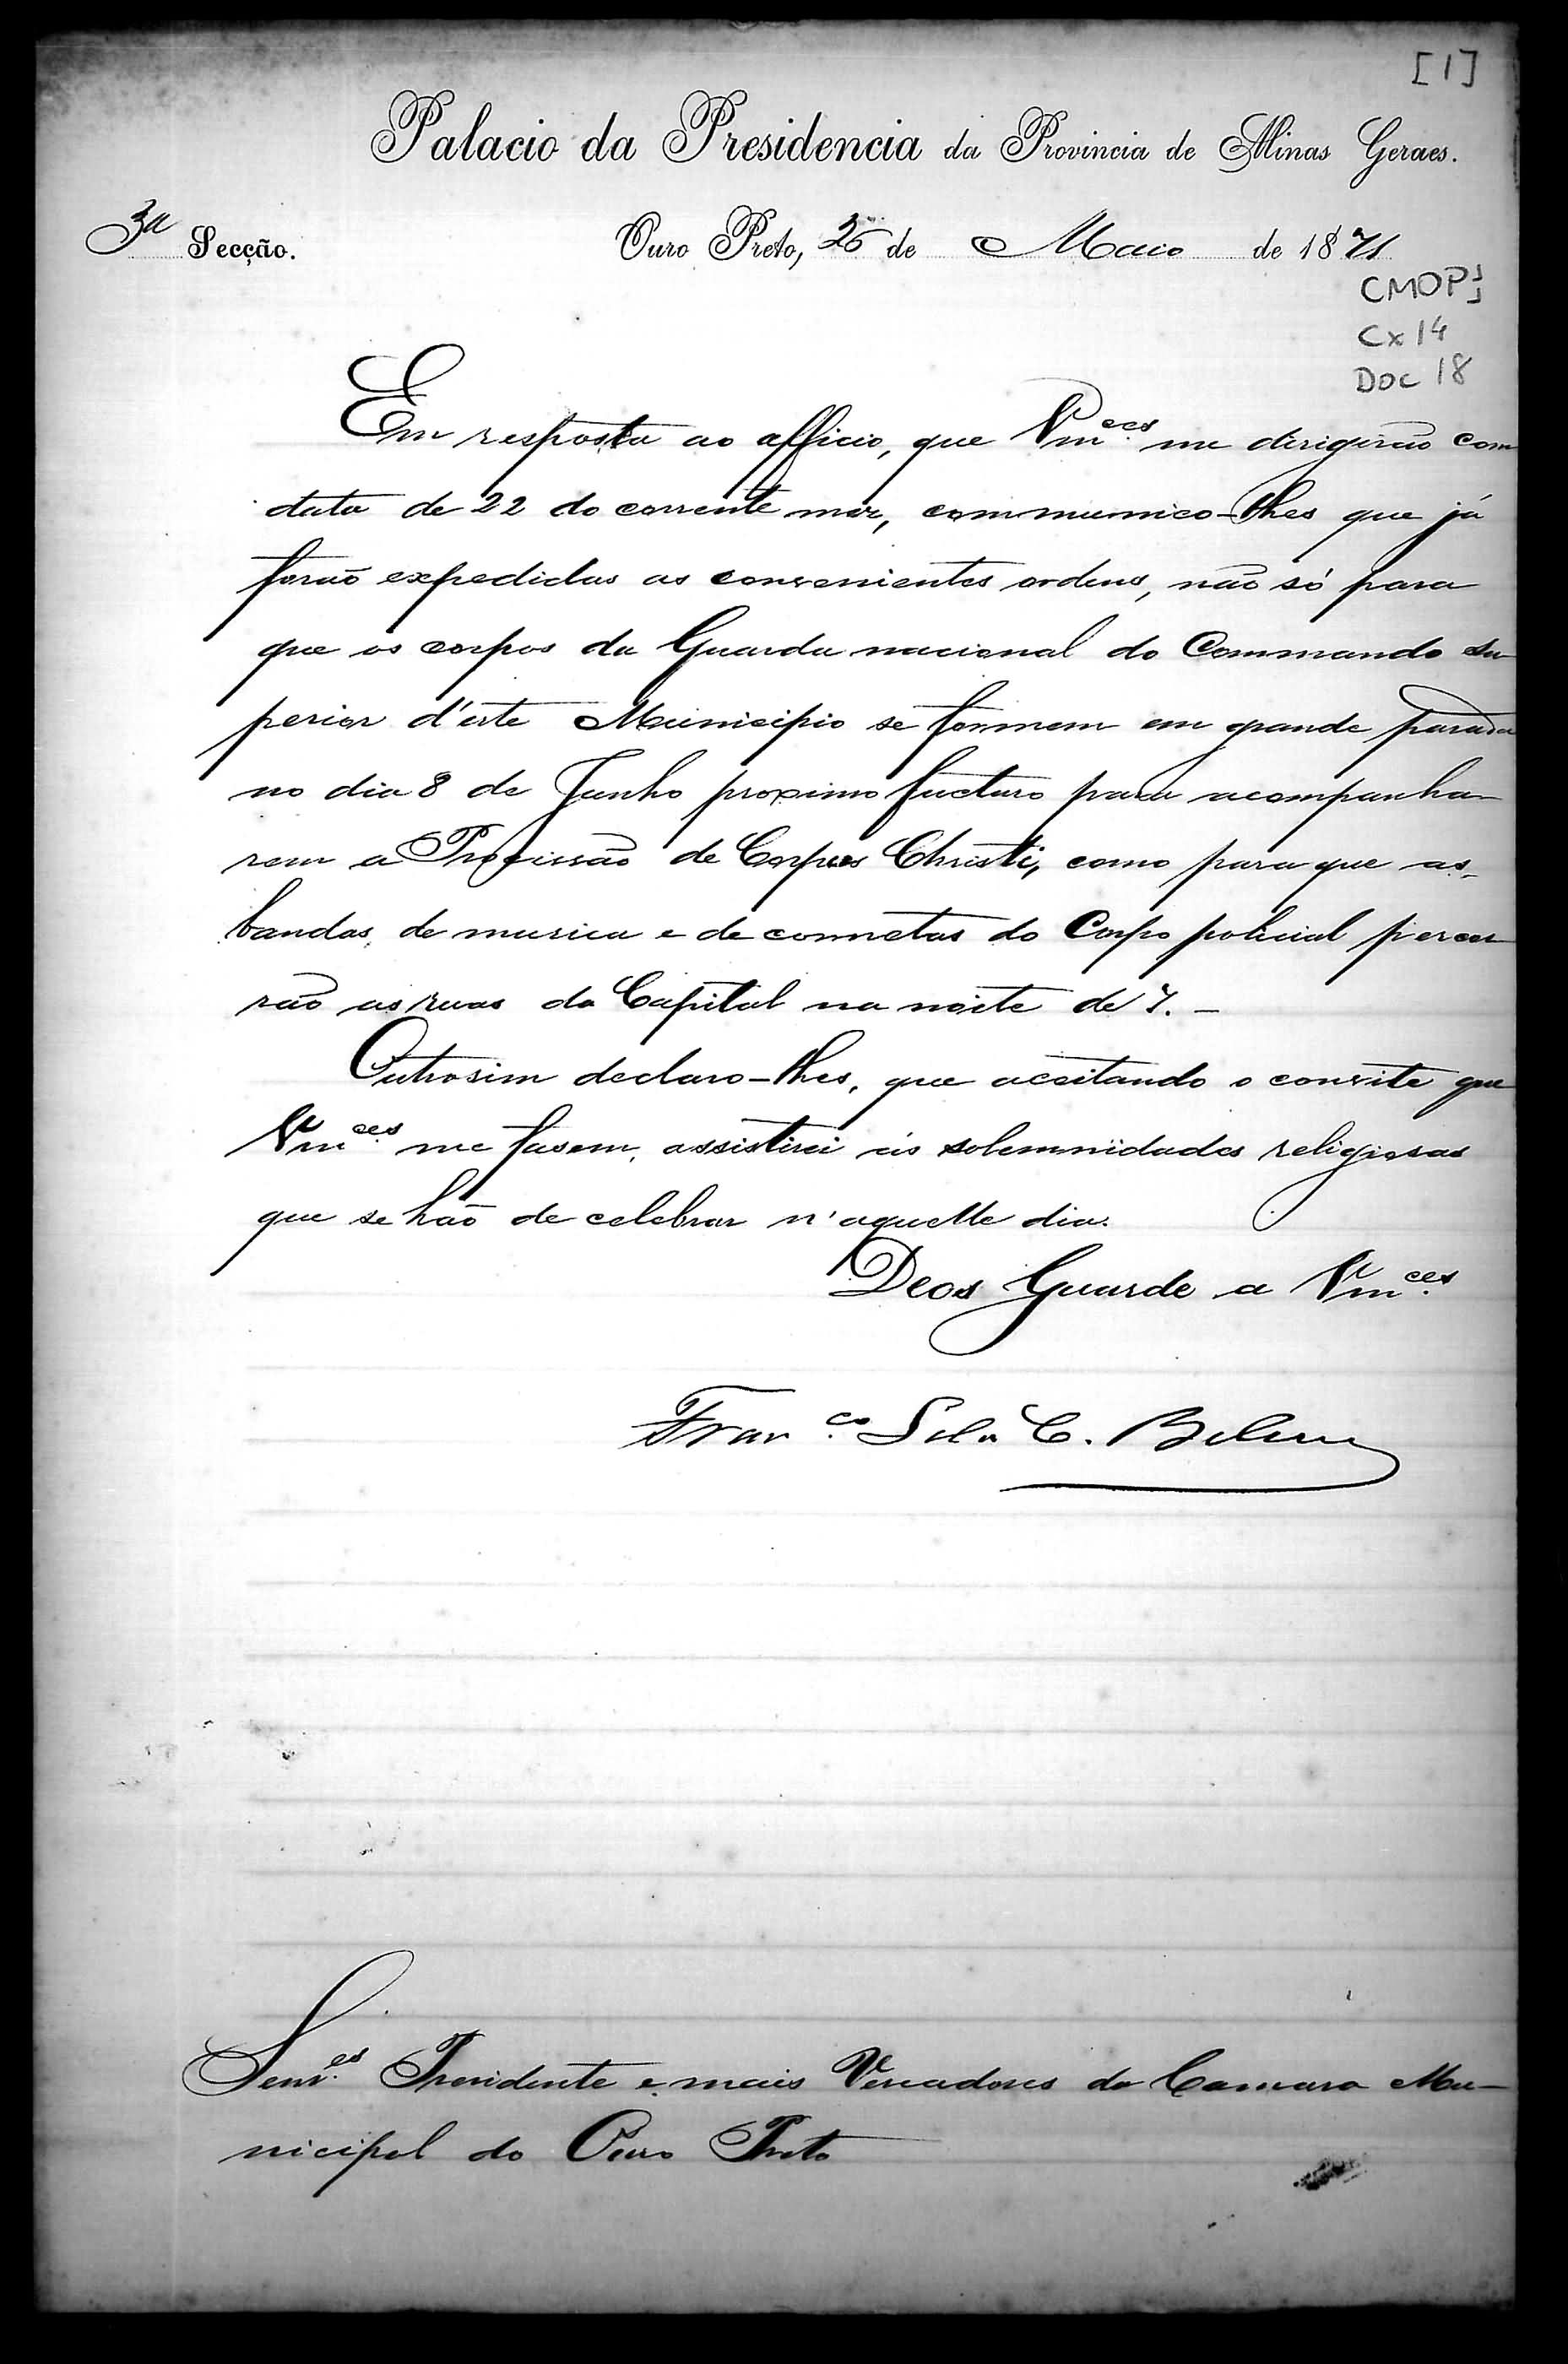 [1]
Palacio da Presidencia da Provincia de Minas Geraes.
3a Secção. Ouro Preto, 26 de Maio de 1871
CMOP
Cx 14
DOC 18
Em resposta ao officio, que Vmces me dirigirão com
data de 22 do corrente mez, communico-lhes que já
forão expedidas as convenientes ordens, não só para
que os corpos da Guarda nacional do Commando su-
perior d'este Municipio se formem em grande parada
no dia 8 de Junho proximo fucturo para acompanha-
rem a Procissão de Corpus Christi, como para que as
bandas de musica e de cornetas do Corpo policial percor-
rão as ruas da Capital na noite de 7. -
Outrosim declaro-lhes, que aceitando o convite que
Vmces me fasem, assistirei ás solemnidades religiosas
que se hão de celebrar n'aquelle dia.
Deos Guarde a Vmces
Franco C. Belem
Senres Presidente e mais Vereadores da Camara Mu-
nicipal do Ouro Preto